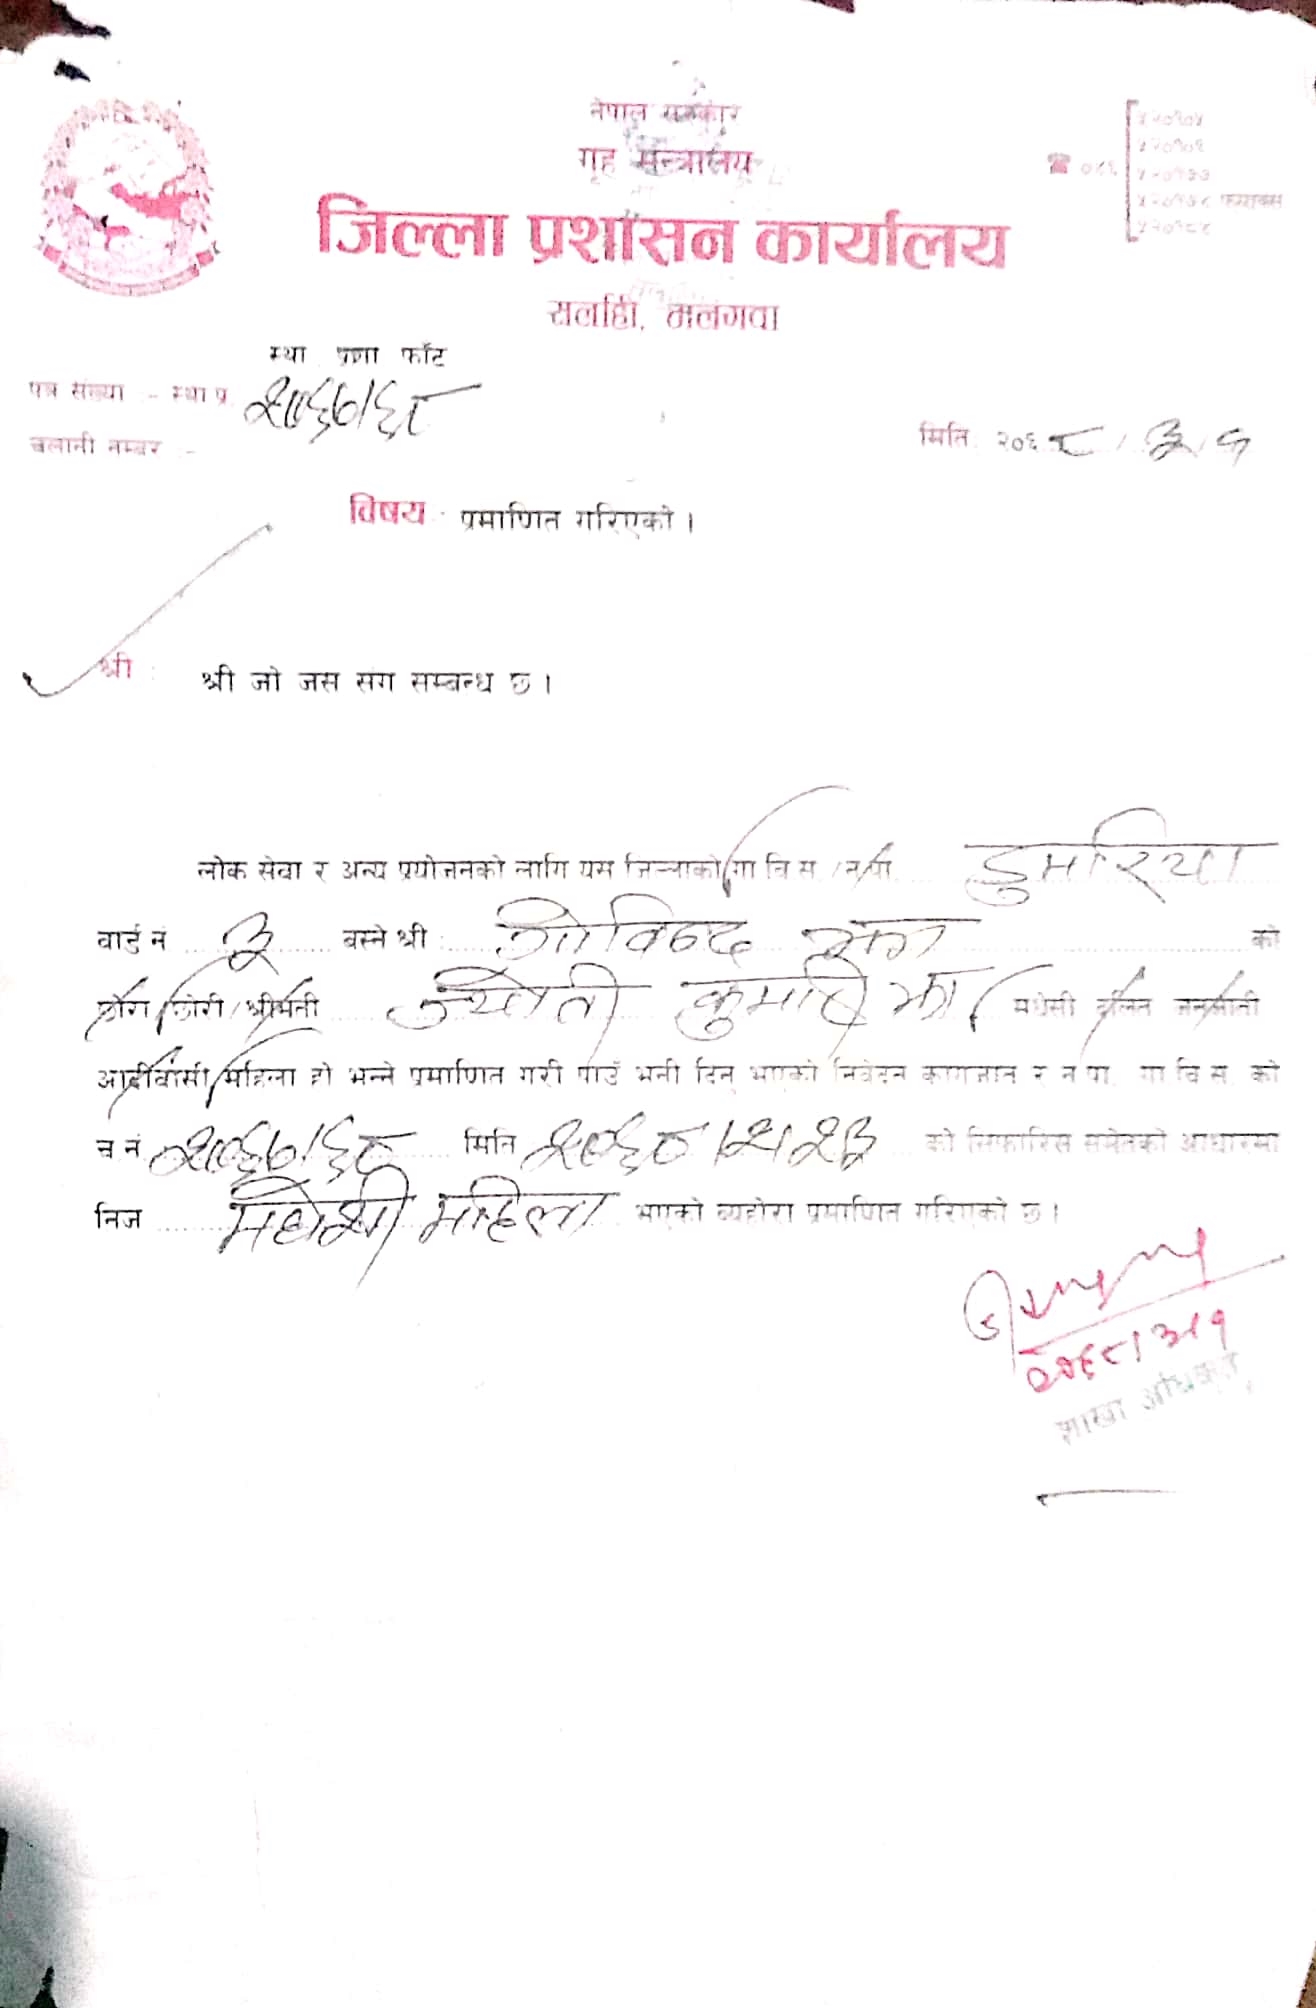 नेपाल सरकार
गृह मन्त्रालय
जिल्ला प्रशासन कार्यालय
सर्लाही, मलंगवा
☎ ०४६
५२०१०५
५२०१०६
५२०१३३
फ्याक्स
स्था प्रशा फाँट
पत्र संख्या :- स्था प्र. २०६७/६८
चलानी नम्बर :-
मिति: २०६८/३/१
विषय: प्रमाणित गरिएको ।
श्री : श्री जो जस संग सम्बन्ध छ ।
लोक सेवा र अन्य प्रयोजनको लागि यस जिल्लाको गा वि स /न पा डुमरिया
वार्ड नं ३ बस्ने श्री गोविन्द झा को
छोरा/छोरी/श्रीमती ज्योती कुमारी झा मधेसी दलित जनजाती
आदीवासी/महिला हो भन्ने प्रमाणित गरी पाउँ भनी दिनु भएको निवेदन कागजात र न पा गा वि स को
च नं २०६७/६८ मिति २०६८/२/२३ को सिफारिस समेतको आधारमा
निज मधेशी महिला भएको व्यहोरा प्रमाणित गरिएको छ ।
२०६८/३/१
शाखा अधिकृत